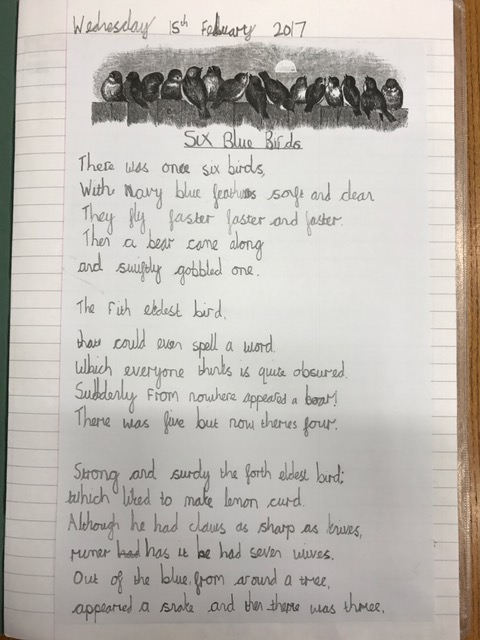 Wednesday 15th February 2017
Six Blue Birds
There was once six birds,
With Navy blue feathers soft and clean
They fly faster faster and faster.
Then a bear came along
and swiftly gobbled one.
The Fith eldest bird,
that could even spell a word.
Which everyone thinks is quite obsured.
Suddenly From nowhere appeared a boar!
There was five but now theres four.
Strong and surdy the forth eldest bird;
Which liked to make lemon curd.
Although he had claws as sharp as knives,
rumer has it he had seven wives.
Out of the blue, from around a tree,
appeared a snake and then there was three.